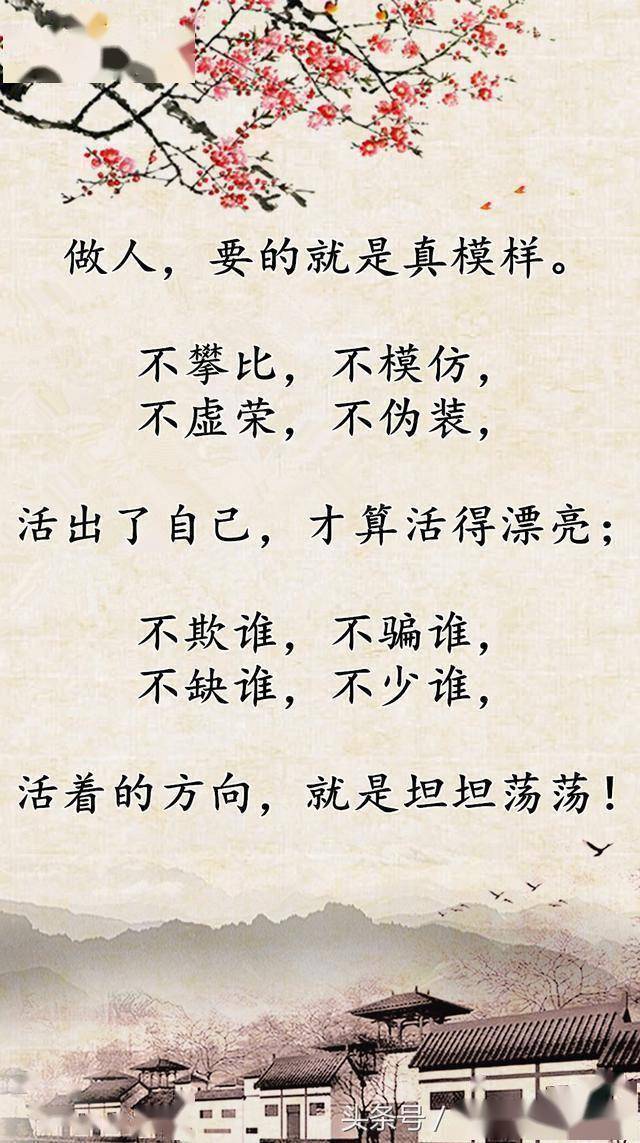 做人，要的就是真模样。
不攀比，不模仿，
不虚荣，不伪装，
活出了自己，才算活得漂亮；
不欺谁，不骗谁，
不缺谁，不少谁，
活着的方向，就是坦坦荡荡！
头条号 /